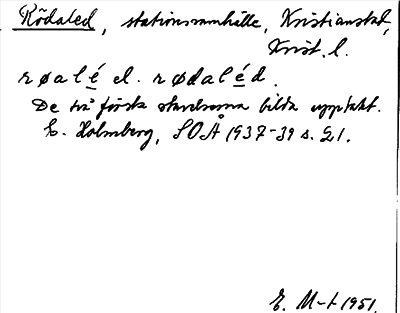 Rödaled, stationssamhälle, Kristianstad,
Krist. l.
røalé el. rødaléd.
De två första stavelserna bilda upptakt.
E. Holmberg, SOÅ 1937-39 s. 21.
E. M-t 1951.